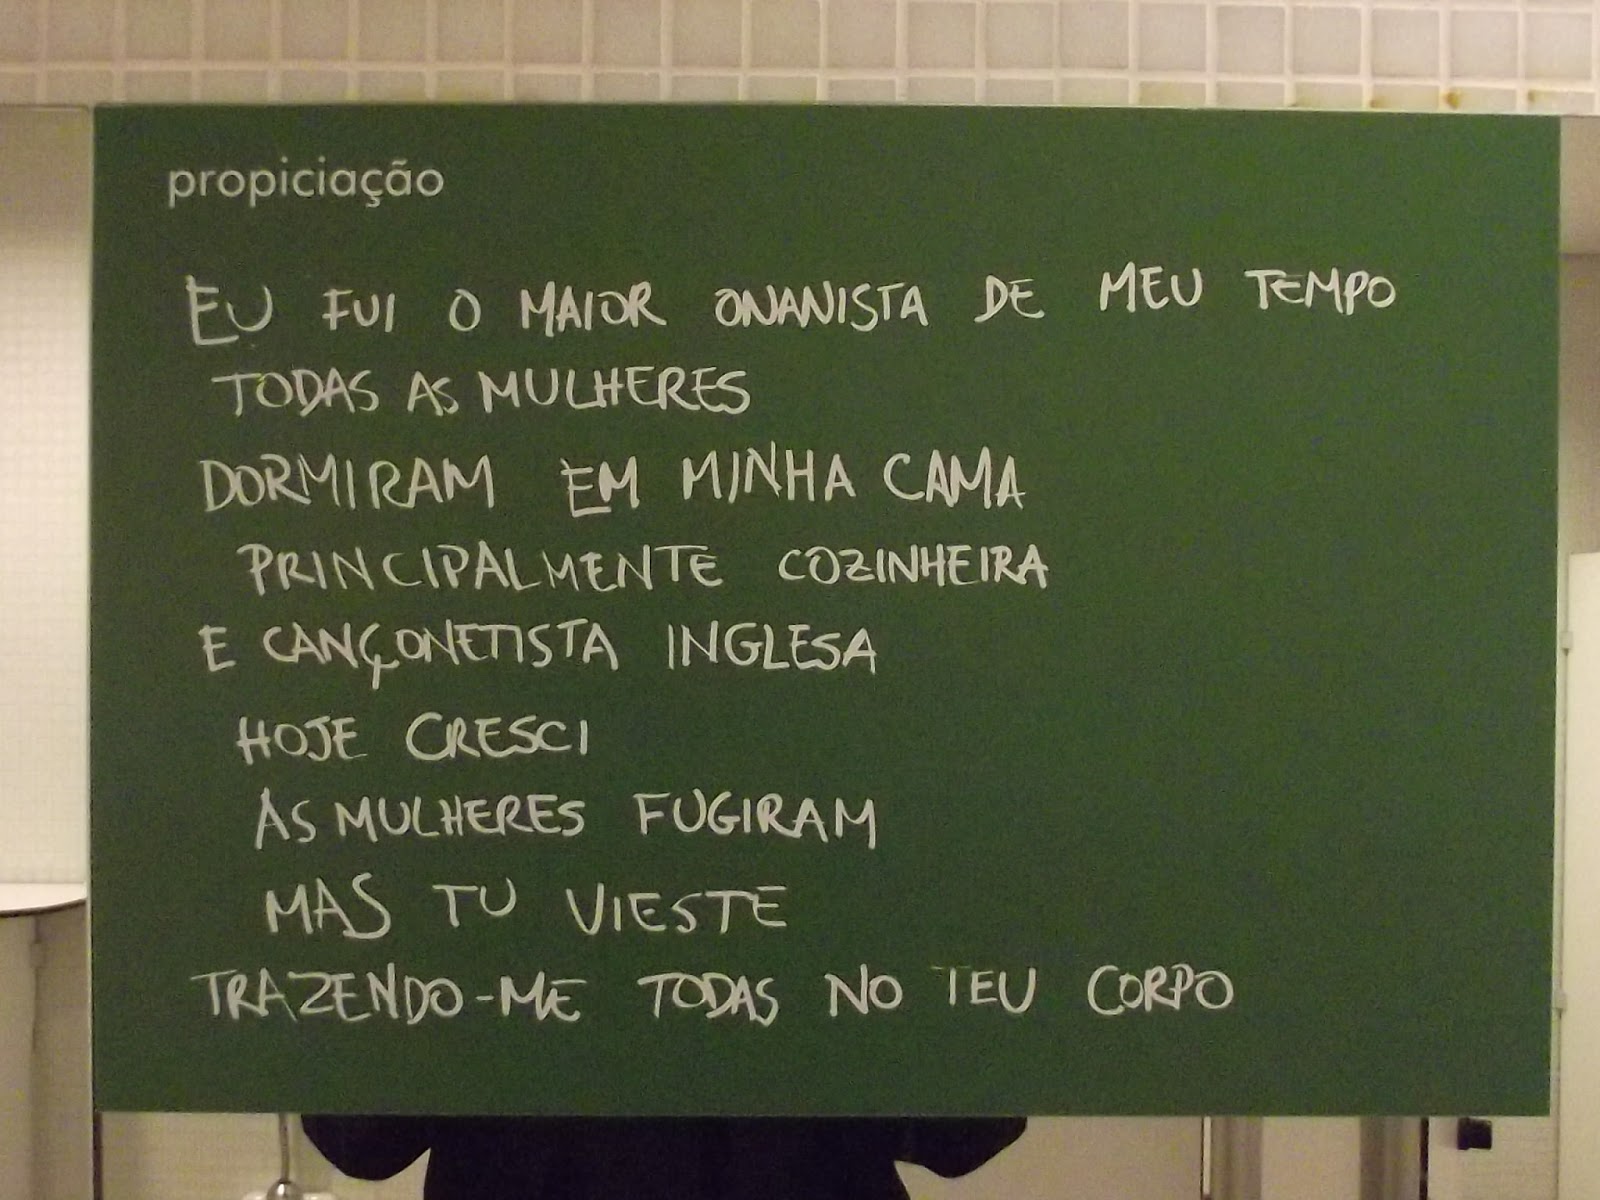 propiciação
EU FUI O MAIOR ONANISTA DE MEU TEMPO
TODAS AS MULHERES
DORMIRAM EM MINHA CAMA
PRINCIPALMENTE COZINHEIRA
E CANÇONETISTA INGLESA
HOJE CRESCI
AS MULHERES FUGIRAM
MAS TU VIESTE
TRAZENDO-ME TODAS NO TEU CORPO